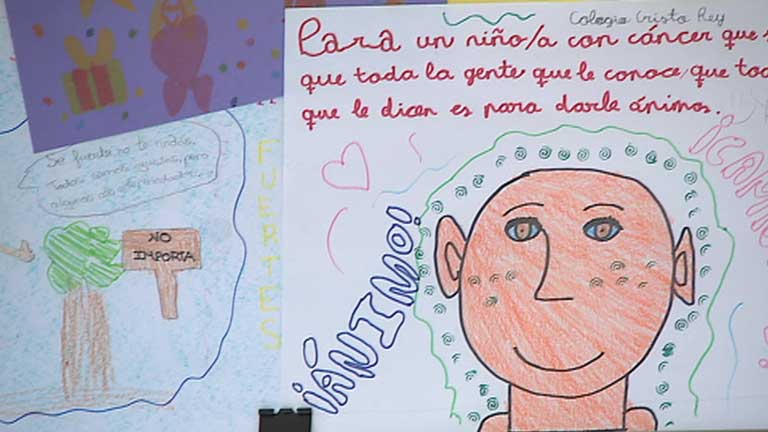 Colegio Cristo Rey
Para un niño/a con cáncer que s
que toda la gente que le conoce, que tod
que le dicen es para darle ánimos.
Se fuerte, no te rindas.
Todos somos iguales, pero
algunos
NO
IMPORTA
FUERTES
¡ÁNIMO!
¡CAM